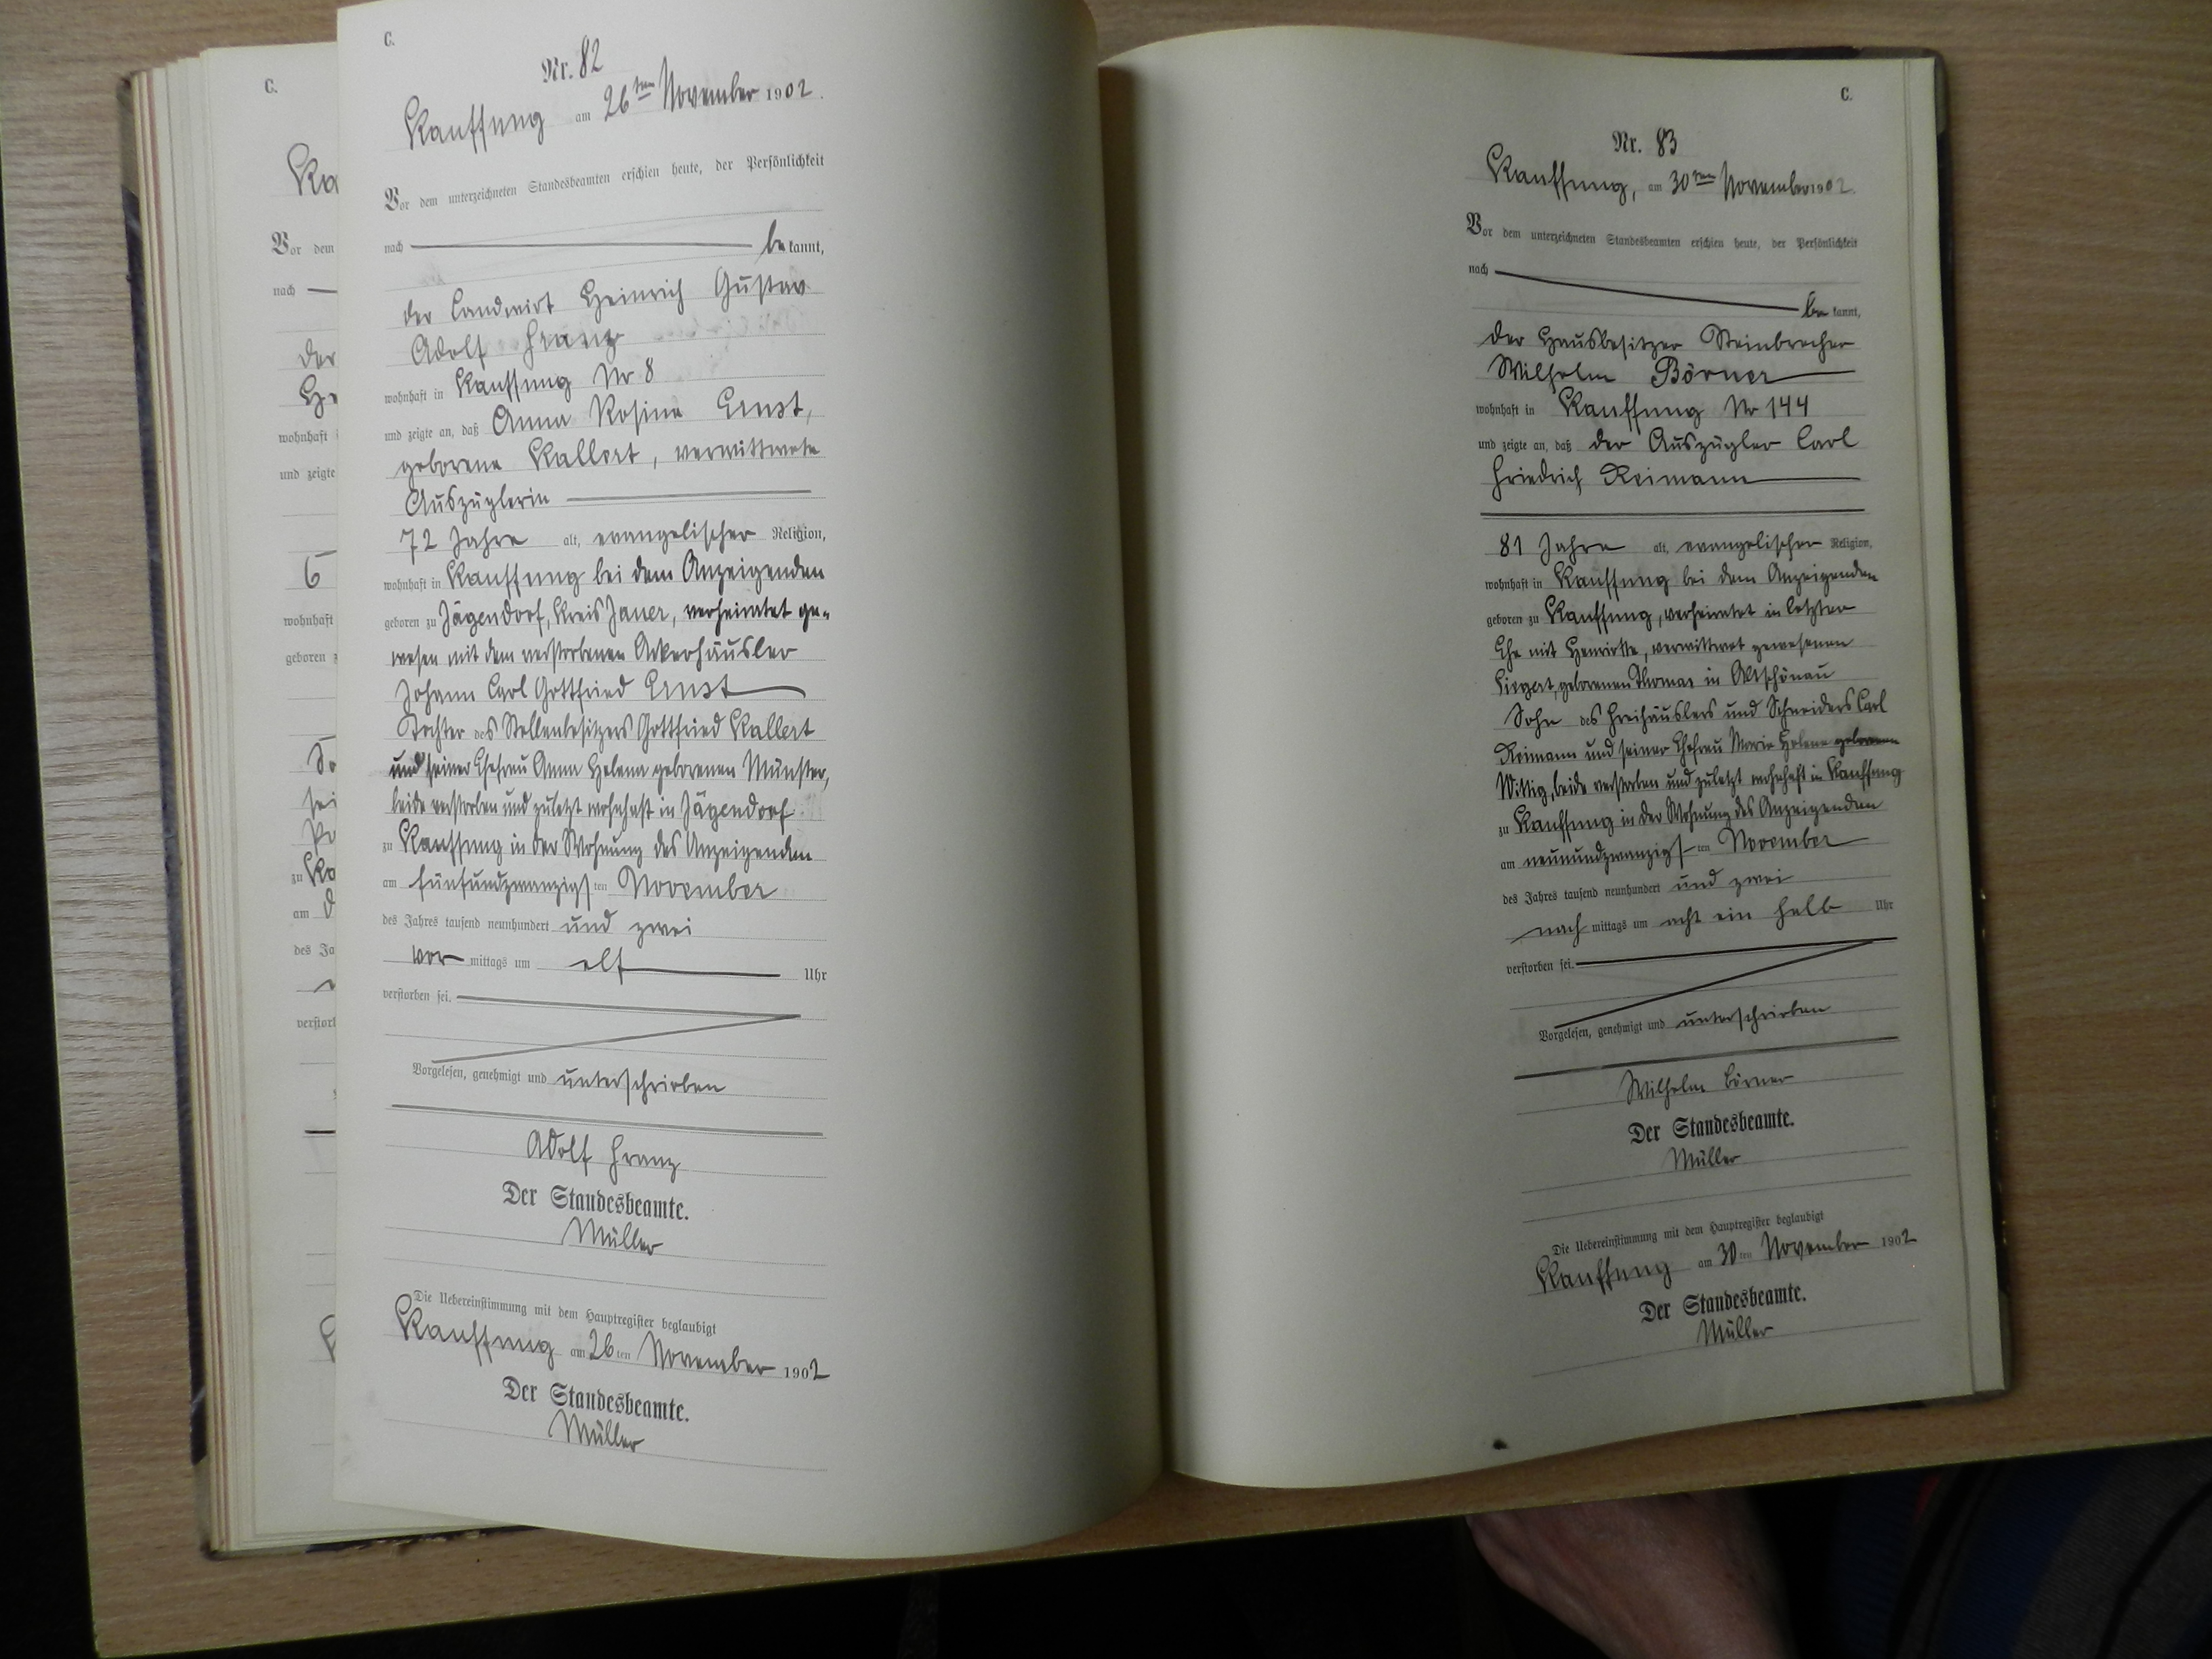 C.
Ka
Vor dem
nach
der
He
wohnhaft
und zeigte
6
wohnhaft
geboren z
So
sei
Po
zu Ka
am d
des Ja
verstorb
C.
Nr. 82
Kauffung am 26ten November 1902.
Vor dem unterzeichneten Standesbeamten erschien heute, der Persönlichkeit
nach be kannt,
der Landwirt Heinrich Gustav
Adolf Franz
wohnhaft in Kauffung Nr 8
und zeigte an, daß Anna Rosina Ernst,
geborene Kallert, verwittwete
Auszüglerin
72 Jahre alt, evangelischer Religion,
wohnhaft in Kauffung bei dem Anzeigenden
geboren zu Jägendorf, Kreis Jauer, verheiratet ge-
wesen mit dem verstorbenen Ackerhäusler
Johann Carl Gottfried Ernst
Tochter des Stellenbesitzers Gottfried Kallert
und seiner Ehefrau Anna Helena geborenen Münster,
beide verstorben und zuletzt wohnhaft in Jägendorf
zu Kauffung in der Wohnung des Anzeigenden
am fünfundzwanzigsten November
des Jahres tausend neunhundert und zwei
vor mittags um elf Uhr
verstorben sei.
Vorgelesen, genehmigt und unterschrieben
Adolf Franz
Der Standesbeamte.
Müller
Die Uebereinstimmung mit dem Hauptregister beglaubigt
Kauffung am 26ten November 1902
Der Standesbeamte.
Müller
C.
Nr. 83
Kauffung, am 30ten November 1902.
Vor dem unterzeichneten Standesbeamten erschien heute, der Persönlichkeit
nach
be kannt,
der Hausbesitzer Steinbrecher
Wilhelm Börner
wohnhaft in Kauffung Nr 144
und zeigte an, daß der Auszügler Carl
Friedrich Reimann
81 Jahre alt, evangelischer Religion,
wohnhaft in Kauffung bei dem Anzeigenden
geboren zu Kauffung, verheiratet in letzter
Ehe mit Henriette, verwittwet gewesenen
geborenen Thomas in Altschönau
Sohn des Freihäuslers und Schneiders Carl
Reimann und seiner Ehefrau Marie Helene geborenen
Wittig, beide verstorben und zuletzt wohnhaft in Kauffung
zu Kauffung in der Wohnung des Anzeigenden
am neunundzwanzigsten November
des Jahres tausend neunhundert und zwei
nach mittags um acht ein halb Uhr
verstorben sei.
Vorgelesen, genehmigt und unterschrieben
Wilhelm Börner
Der Standesbeamte.
Müller
Die Uebereinstimmung mit dem Hauptregister beglaubigt
Kauffung am 30ten November 1902
Der Standesbeamte.
Müller